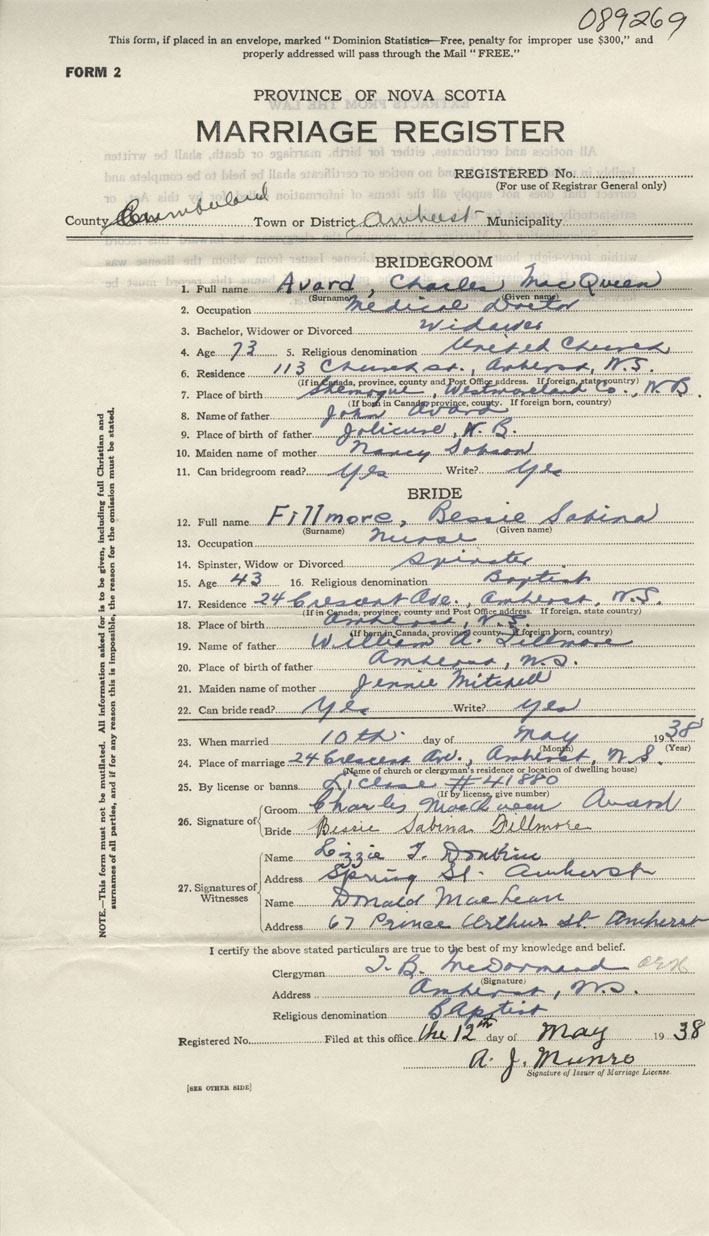 089269
This form, if placed in an envelope, marked "Dominion Statistics—Free, penalty for improper use $300," and
properly addressed will pass through the Mail "FREE."
FORM 2
PROVINCE OF NOVA SCOTIA
MARRIAGE REGISTER
REGISTERED No.
(For use of Registrar General only)
County Cumberland Town or District Amherst Municipality
BRIDEGROOM
1. Full name Avard, Charles MacQueen
(Surname) (Given name)
2. Occupation Medical Doctor
3. Bachelor, Widower or Divorced Widower
4. Age 73 5. Religious denomination United Church
6. Residence 113 Church St., Amherst, N.S.
(If in Canada, province, county and Post Office address. If foreign, state country)
7. Place of birth Shemogue, Westmorland Co., N.B.
(If born in Canada, province, county. If foreign born, country)
8. Name of father John Avard
9. Place of birth of father Jolicure, N.B.
10. Maiden name of mother Nancy Dobson
11. Can bridegroom read? Yes Write? Yes
BRIDE
12. Full name Fillmore, Bessie Sabina
(Surname) (Given name)
13. Occupation Nurse
14. Spinster, Widow or Divorced Spinster
15. Age 43 16. Religious denomination Baptist
17. Residence 24 Crescent Ave., Amherst, N.S.
(If in Canada, province, county and Post Office address. If foreign, state country)
18. Place of birth Amherst, N.S.
(If born in Canada, province, county. If foreign born, country)
19. Name of father William A. Fillmore
20. Place of birth of father Amherst, N.S.
21. Maiden name of mother Jennie Mitchell
22. Can bride read? Yes Write? Yes
23. When married 10th day of May 1938
(Month) (Year)
24. Place of marriage 24 Crescent Av., Amherst, N.S.
(Name of church or clergyman's residence or location of dwelling house)
25. By license or banns License #41880
(If by license, give number)
26. Signature of Groom Charles MacQueen Avard
Bride Bessie Sabina Fillmore
27. Signatures of Witnesses
Name Lizzie T. Donkin
Address Spring St. Amherst
Name Donald MacLean
Address 67 Prince Arthur St Amherst
I certify the above stated particulars are true to the best of my knowledge and belief.
Clergyman T. B. McDormand
(Signature)
Address Amherst, N.S.
Religious denomination Baptist
Registered No. Filed at this office the 12th day of May 1938
A. J. Munro
Signature of Issuer of Marriage License.
[SEE OTHER SIDE]
NOTE.—This form must not be mutilated. All information asked for is to be given, including full Christian and
surnames of all parties, and if for any reason this is impossible, the reason for the omission must be stated.